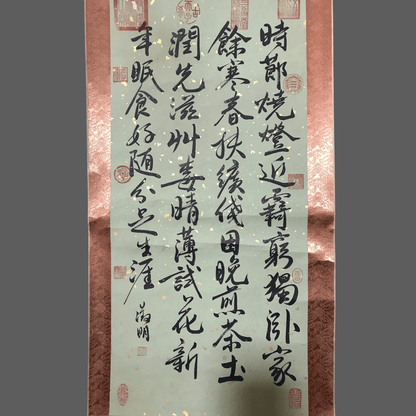 時節燒燈近霽窮獨臥家
餘寒春扶纊伐困晚煎茶土
潤先滋艸晴薄試花新
年眠食好随分足生涯
徵明